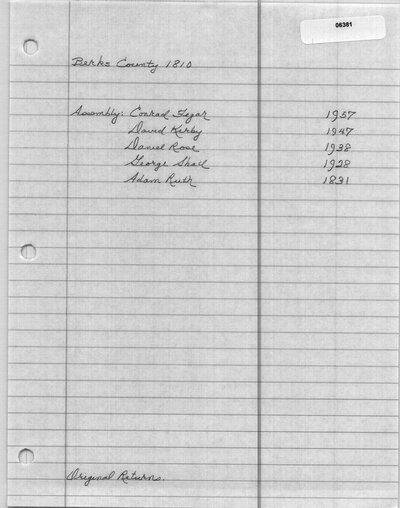 06381
Berks County 1810
Assembly: Conrad Fegar 1957
David Kerby 1947
Daniel Rose 1938
George Shad 1928
Adam Ruth 1831
Original Returns.